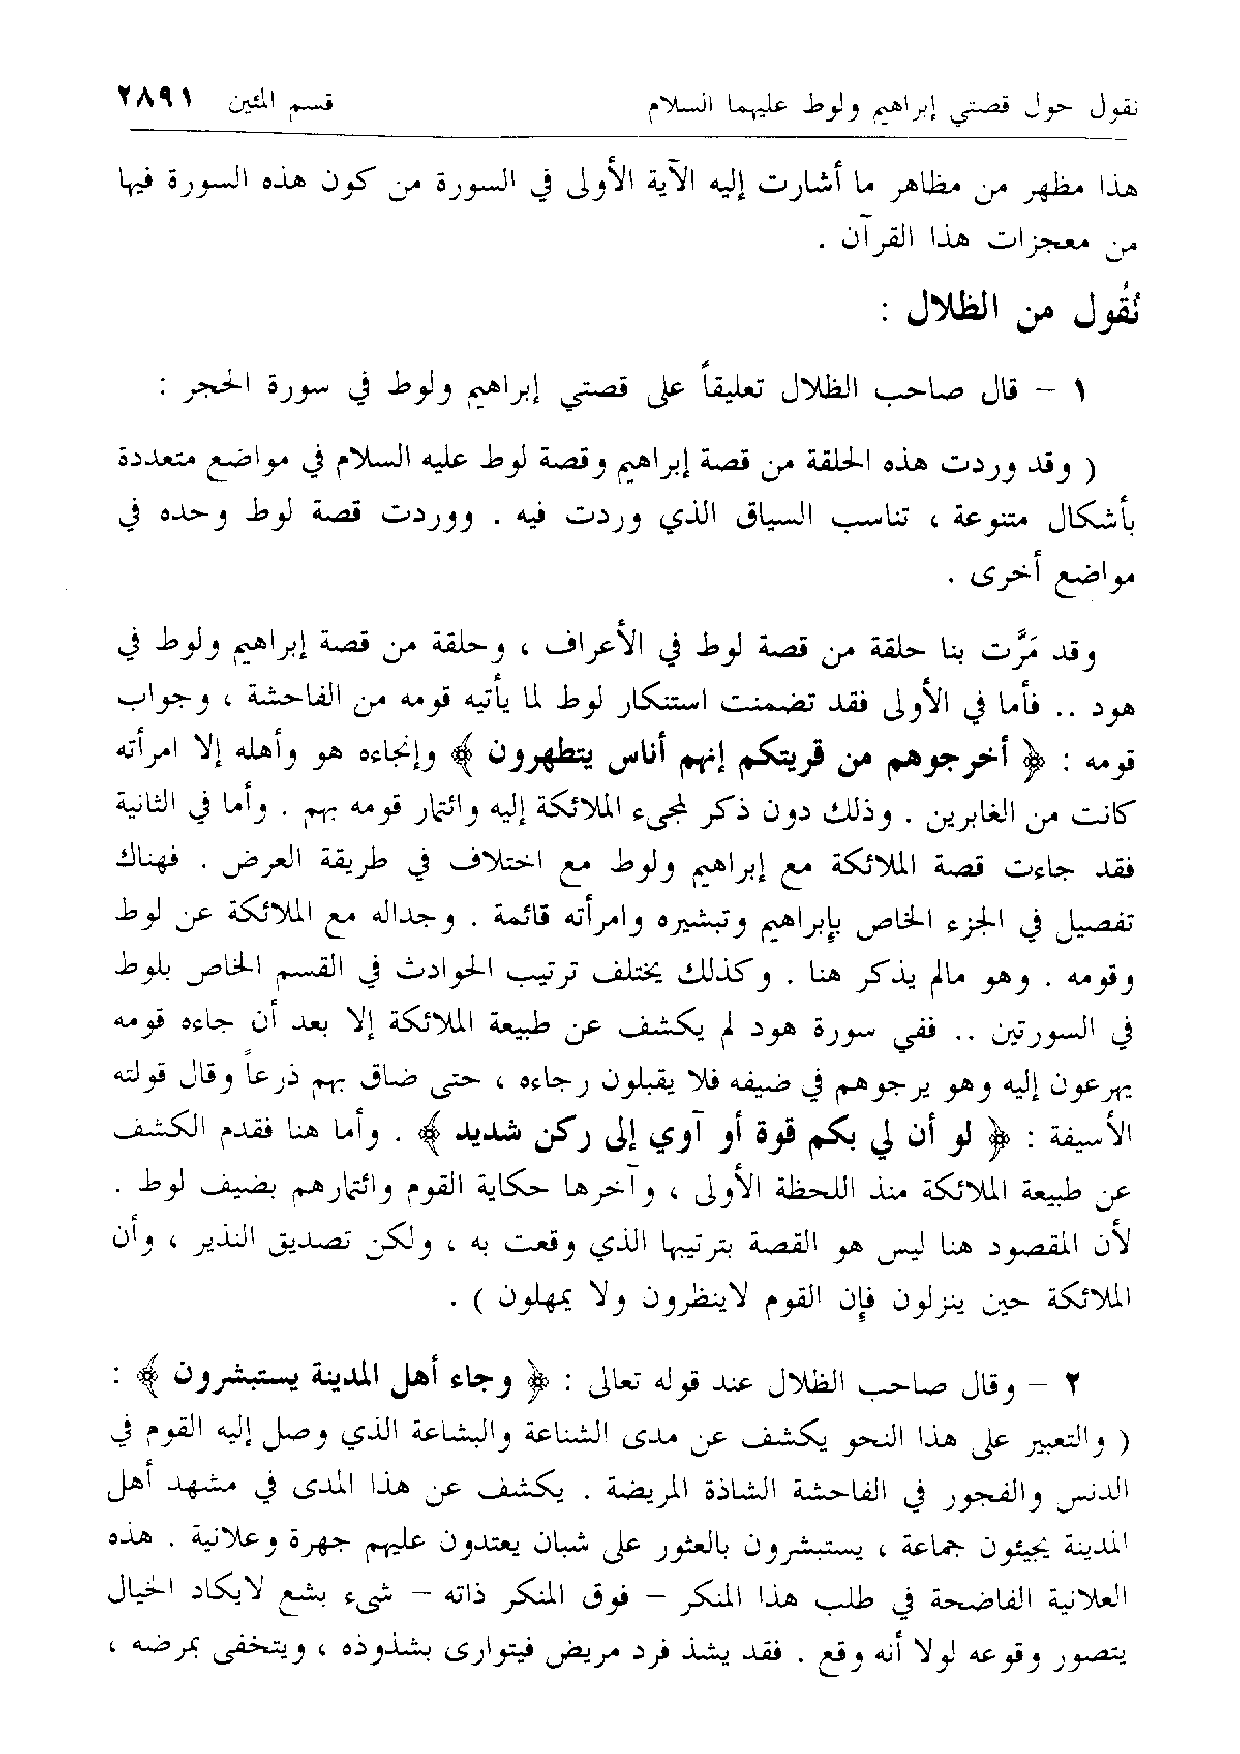 نقول حول قصتي إبراهيم ولوط عليهما السلام قسم المئين ٢٨٩١
هذا مظهر من مظاهر ما أشارت إليه الآية الأولى في السورة من كون هذه السورة فيها
من معجزات هذا القرآن .
نُقُول من الظلال :
١ - قال صاحب الظلال تعليقاً على قصتي إبراهيم ولوط في سورة الحجر :
( وقد وردت هذه الحلقة من قصة إبراهيم وقصة لوط عليه السلام في مواضع متعددة
بأشكال متنوعة ، تناسب السياق الذي وردت فيه . ووردت قصة لوط وحده في
مواضع أخرى .
وقد مَرَّت بنا حلقة من قصة لوط في الأعراف ، وحلقة من قصة إبراهيم ولوط في
هود .. فأما في الأولى فقد تضمنت استنكار لوط لما يأتيه قومه من الفاحشة ، وجواب
قومه : ﴿ أخرجوهم من قريتكم إنهم أناس يتطهرون ﴾ وإنجاءه هو وأهله إلا امرأته
كانت من الغابرين . وذلك دون ذكر لمجيء الملائكة إليه وائتمار قومه بهم . وأما في الثانية
فقد جاءت قصة الملائكة مع إبراهيم ولوط مع اختلاف في طريقة العرض . فهناك
تفصيل في الجزء الخاص بإبراهيم وتبشيره وامرأته قائمة . وجداله مع الملائكة عن لوط
وقومه . وهو مالم يذكر هنا . وكذلك يختلف ترتيب الحوادث في القسم الخاص بلوط
في السورتين .. ففي سورة هود لم يكشف عن طبيعة الملائكة إلا بعد أن جاءه قومه
يهرعون إليه وهو يرجوهم في ضيفه فلا يقبلون رجاءه ، حتى ضاق بهم ذرعاً وقال قولته
الأسيفة : ﴿ لو أن لي بكم قوة أو آوي إلى ركن شديد ﴾ . وأما هنا فقدم الكشف
عن طبيعة الملائكة منذ اللحظة الأولى ، وآخرها حكاية القوم وائتمارهم بضيف لوط .
لأن المقصود هنا ليس هو القصة بترتيبها الذي وقعت به ، ولكن تصديق النذير ، وأن
الملائكة حين ينزلون فإن القوم لاينظرون ولا يمهلون ) .
٢ - وقال صاحب الظلال عند قوله تعالى : ﴿ وجاء أهل المدينة يستبشرون ﴾ :
( والتعبير على هذا النحو يكشف عن مدى الشناعة والبشاعة الذي وصل إليه القوم في
الدنس والفجور في الفاحشة الشاذة المريضة . يكشف عن هذا المدى في مشهد أهل
المدينة يجيئون جماعة ، يستبشرون بالعثور على شبان يعتدون عليهم جهرة وعلانية . هذه
العلانية الفاضحة في طلب هذا المنكر - فوق المنكر ذاته - شيء بشع لايكاد الخيال
يتصور وقوعه لولا أنه وقع . فقد يشذ فرد مريض فيتوارى بشذوذه ، ويتخفى بمرضه ،